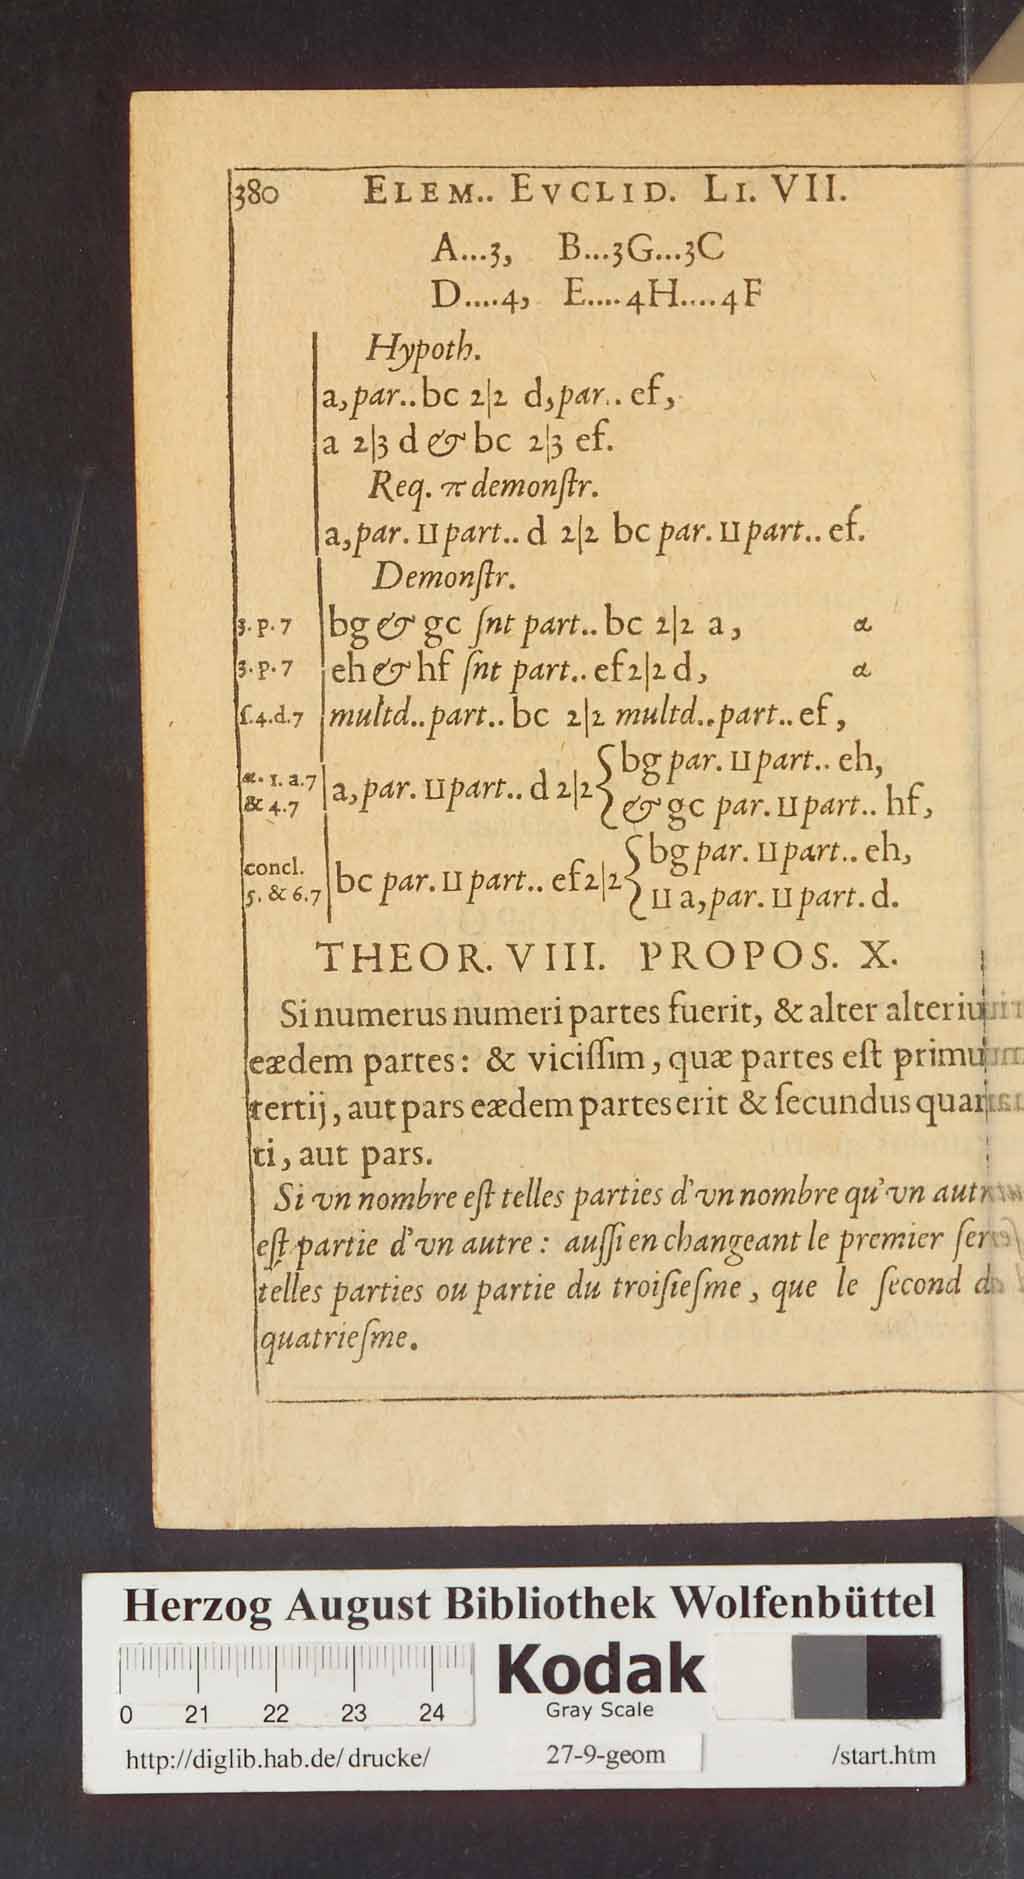 380 ELEM.. EVCLID. LI. VII.
A...3, B...3G...3C
D....4, E....4H....4F
Hypoth.
a, par.. bc 2|2 d, par.. ef,
a 2|3 d & bc 2|3 ef.
Req. π demonſtr.
a, par. ⊔ part.. d 2|2 bc par. ⊔ part.. ef.
Demonſtr.
3. p. 7 bg & gc ſnt part.. bc 2|2 a, α
3. p. 7 eh & hf ſnt part.. ef 2|2 d, α
ſ. 4. d. 7 multd.. part.. bc 2|2 multd.. part.. ef,
α. 1. a. 7 & 4. 7 a, par. ⊔ part.. d 2|2 { bg par. ⊔ part.. eh,
& gc par. ⊔ part.. hf,
concl. 5. & 6. 7 bc par. ⊔ part.. ef 2|2 { bg par. ⊔ part.. eh,
⊔ a, par. ⊔ part. d.
THEOR. VIII. PROPOS. X.
Si numerus numeri partes fuerit, & alter alteriu
eædem partes: & viciſſim, quæ partes eſt primu
tertij, aut pars eædem partes erit & ſecundus quar
ti, aut pars.
Si vn nombre eſt telles parties d'vn nombre qu'vn autr
eſt partie d'vn autre: auſſi en changeant le premier ſer
telles parties ou partie du troiſieſme, que le ſecond d
quatrieſme.
Herzog August Bibliothek Wolfenbüttel
Kodak
Gray Scale
0 21 22 23 24
http://diglib.hab.de/drucke/ 27-9-geom /start.htm